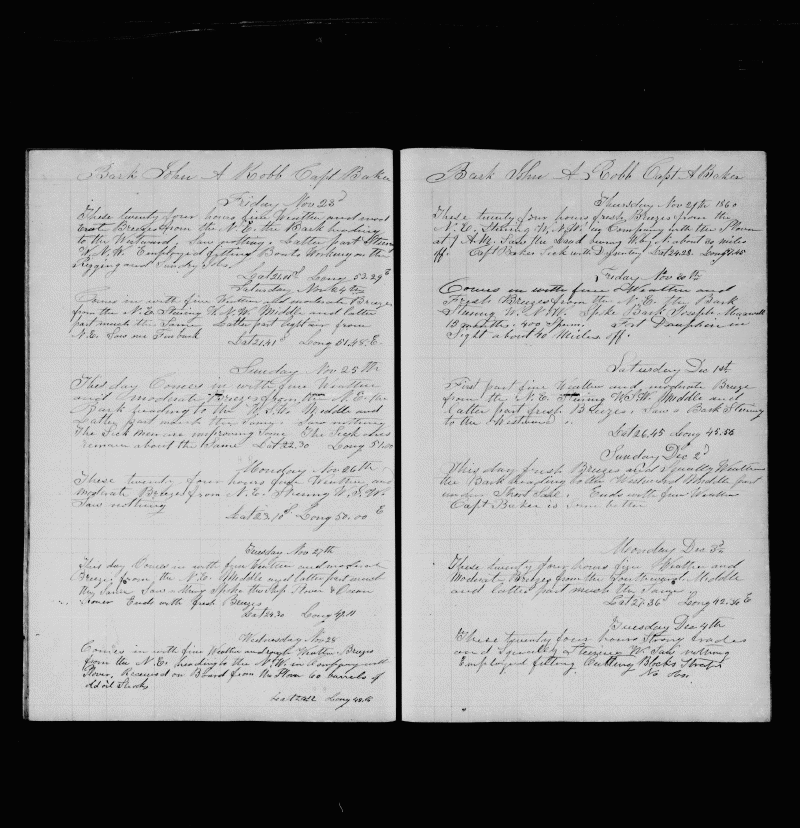 Bark John A Robb Capt Baker
Friday Nov 23d
These twenty four hours fine Weather and mod
erate Breezes from the N. E. the Bark heading
to the Westward Saw nothing. Latter part Steering
W. N. W. Employed fitting Boats Working on the
Rigging and Sundry Jobs
Lat 21.11 S Long 53.29 E
Saturday Nov 24th
Comes in with fine Weather and moderate Breezes
from the N. E. Steering W. N. W. Middle and latter
part much the Same Latter part light air from
N. E. Saw one Finback
Lat 21.41 Long 51.48. E.
Sunday Nov 25th
This day Comes in with fine Weather
and moderate Breezes from the N. E. the
Bark heading to the W. S. W. Middle and
Latter part much the Same. Saw nothing
The Sick men are improving Some The Sick ones
remain about the Same Lat 22.30 Long 51.00
Monday Nov 26th
These twenty four hours fine Weather and
moderate Breezes from N. E. Steering W. S. W.
Saw nothing
Lat 23.10 S. Long 50.00 E
Tuesday Nov 27th
This day Comes in with fine Weather and moderate
Breezes from the N. E. Middle and latter part much
the Same Saw Ships Spoke the Ship Rover & Ocean
Rover Ends with fresh Breezes
Lat 24.20 Long 49.11
Wednesday Nov 28
Comes in with fine Weather and Weather Breezes
from the N. E. heading to the N. W. in Company with
Rover, Received on Board from the Ship 60 barrels of
old oil Shooks
Long 48.16
Bark John A Robb Capt A Baker
Thursday Nov 29th 1860
These twenty four hours fresh Breezes from the
N. E. Steering W. N. W. in Company with the Rover
at 7 A. M. Saw the Land bearing W by N about 40 miles
off. Capt Baker Sick with Dysentery Lat 24.28. Long
Friday Nov 30th
Comes in with fine Weather and
Fresh Breezes from the N. E. the Bark
Steering W. N. W. Spoke Bark Joseph Maxwell
18 months. 400 Sperm. Fort Dauphin in
Sight about 40 Miles off.
Saturday Dec 1st
First part fine Weather and moderate Breeze
from the N. E. Steering W. S. W. Middle and
latter part fresh Breezes. Saw a Bark Steering
to the Westward.
Lat 26.45 Long 45.56
Sunday Dec 2d
This day fresh Breezes and Squally Weather
the Bark heading to the Westward Middle part
under Short Sail. Ends with fine Weather
Capt Baker is Some better
Monday Dec 3d
These twenty four hours fine Weather and
Moderate Breezes from the Southward Middle
and latter part much the Same
Lat 27.36 Long 42.30 E
Tuesday Dec 4th
These twenty four hours Strong trades
and Squally Steering W. Saw nothing
Employed fitting Cutting Blocks Straps
No Obs.